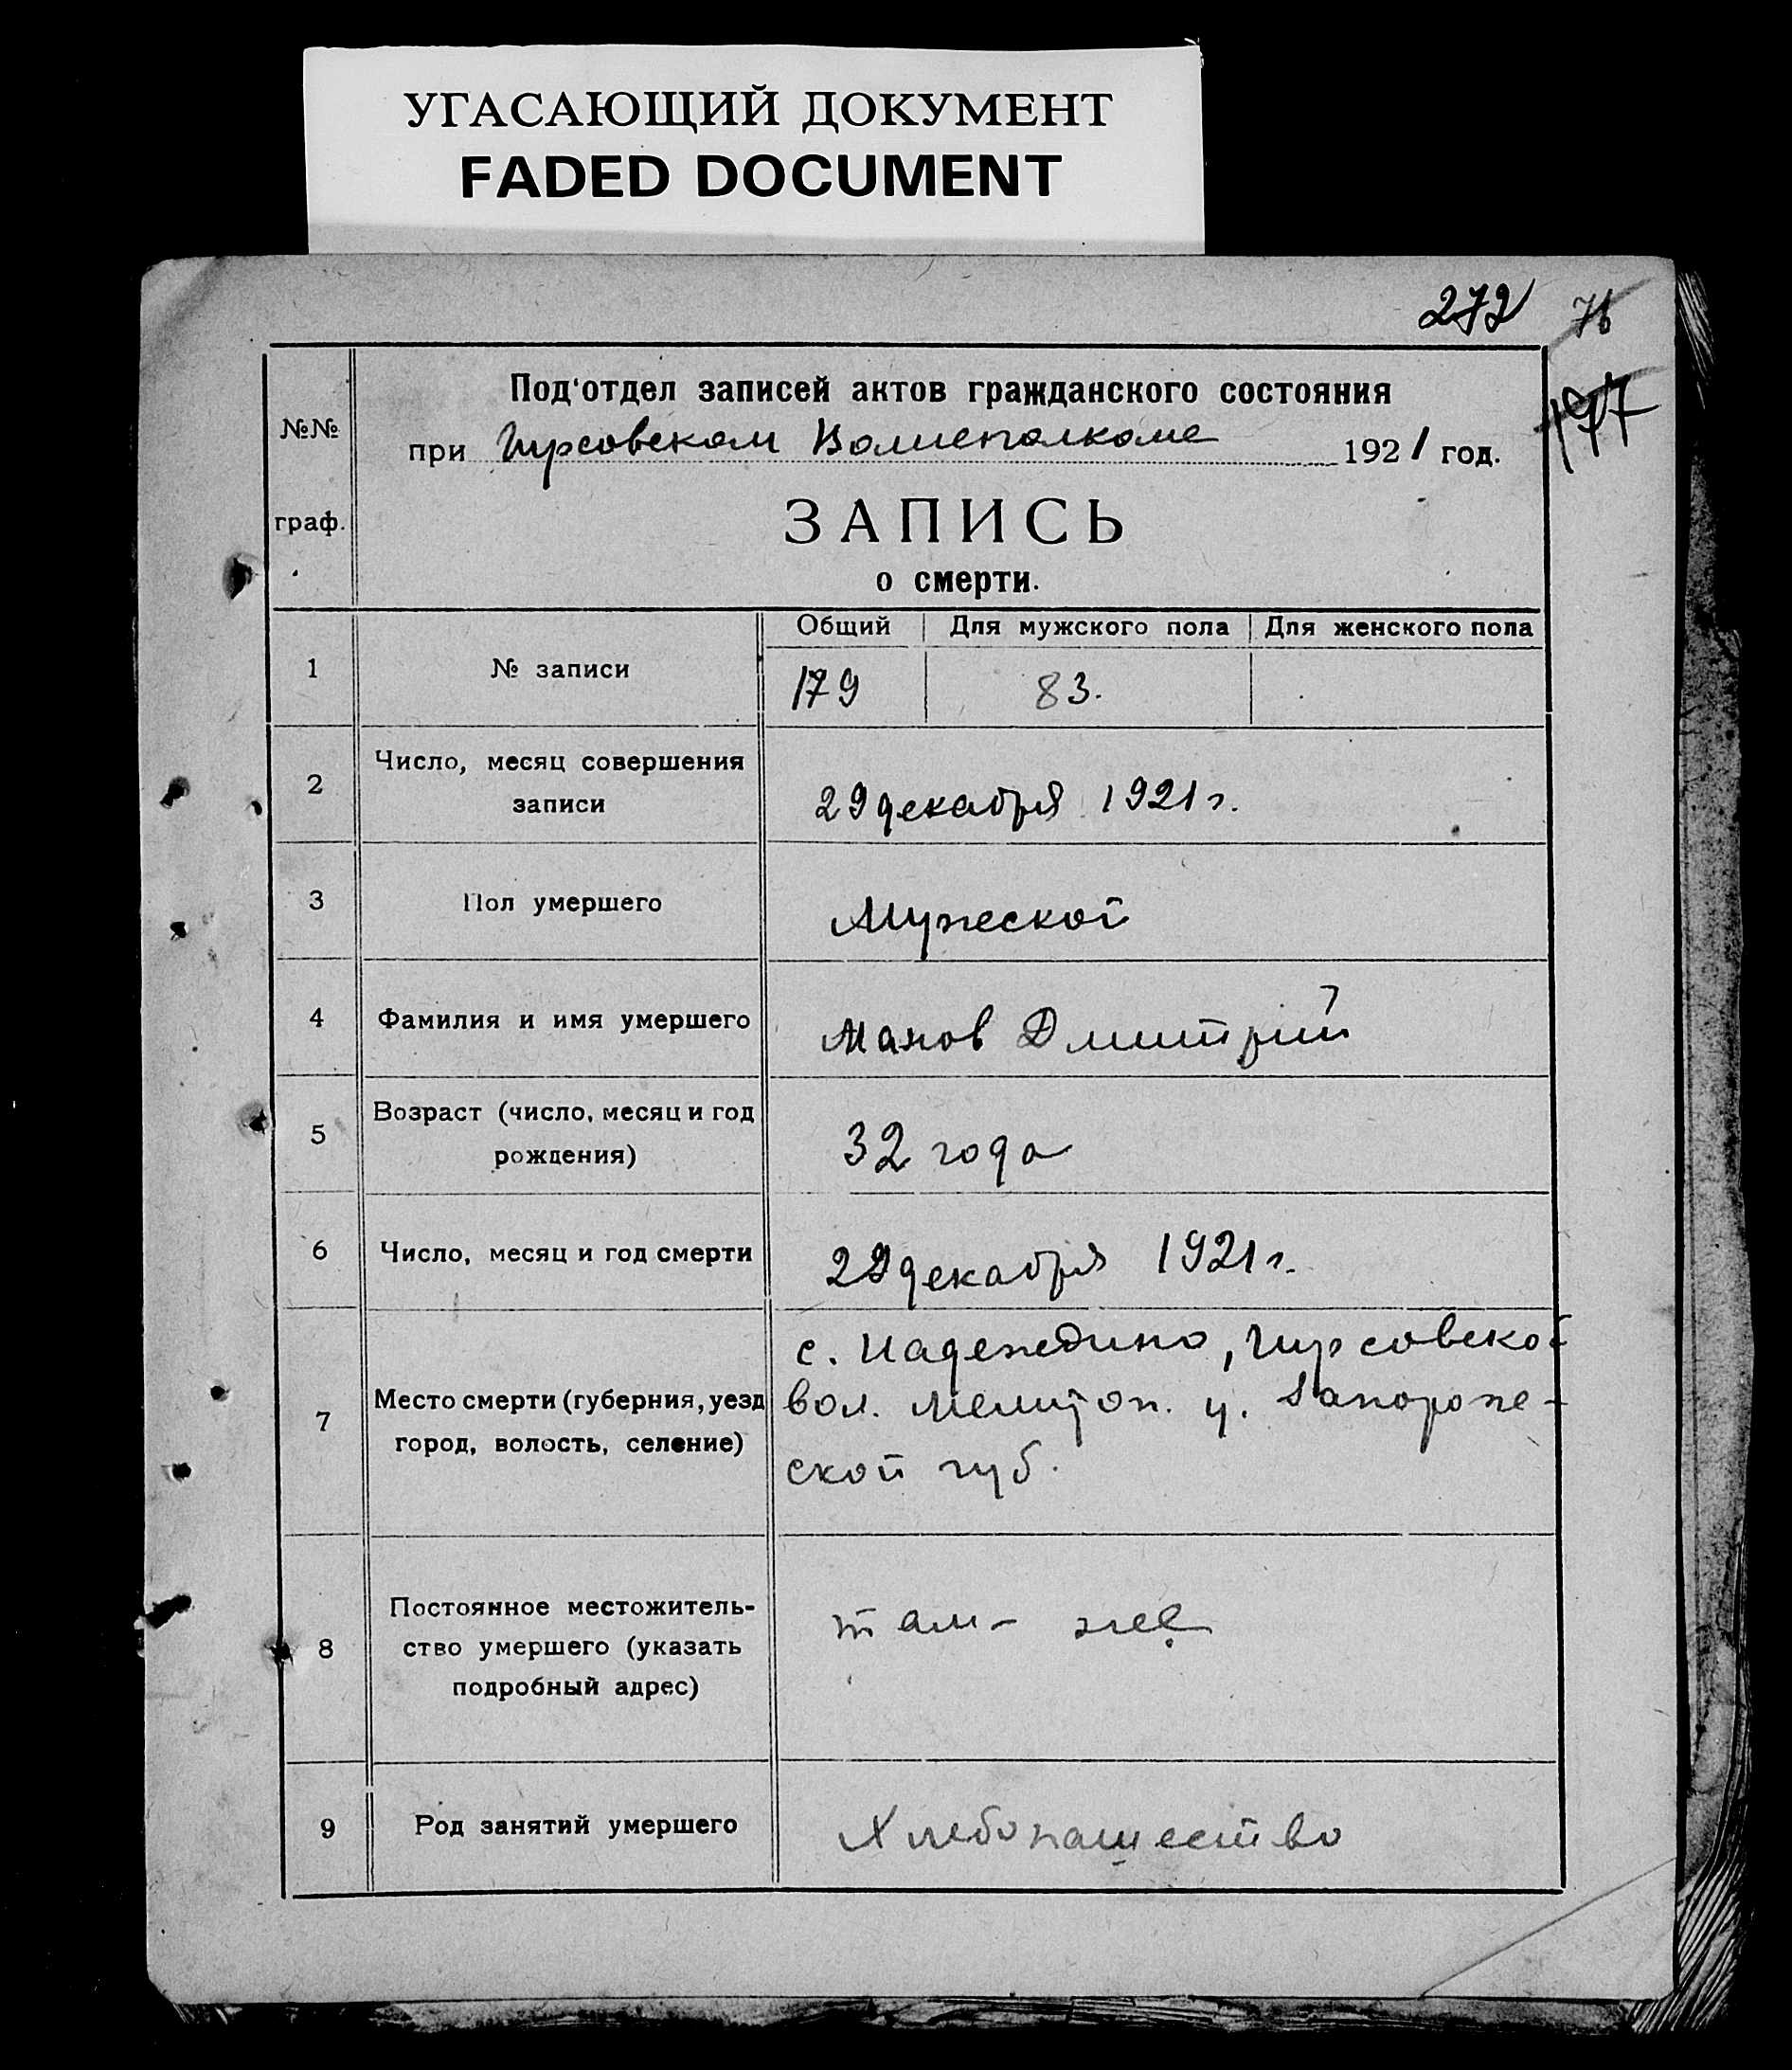 УГАСАЮЩИЙ ДОКУМЕНТ
FADED DOCUMENT
272 76
197
№№ граф.
Под'отдел записей актов гражданского состояния
при Гирсовском Волисполкоме 1921 год.
ЗАПИСЬ
о смерти.
Общий Для мужского пола Для женского пола
1 № записи 179 83.
2 Число, месяц совершения
записи 29 декабря 1921 г.
3 Пол умершего Мужеской
4 Фамилия и имя умершего Дмитрий
5 Возраст (число, месяц и год
рождения) 32 года
6 Число, месяц и год смерти 29 декабря 1921 г.
7 Место смерти (губерния, уезд
город, волость, селение)
с. Надеждино, Гирсовской
вол. Мелитоп. у. Запороже-
ской губ.
8 Постоянное местожитель-
ство умершего (указать
подробный адрес)
там - же
9 Род занятий умершего Хлебопашество